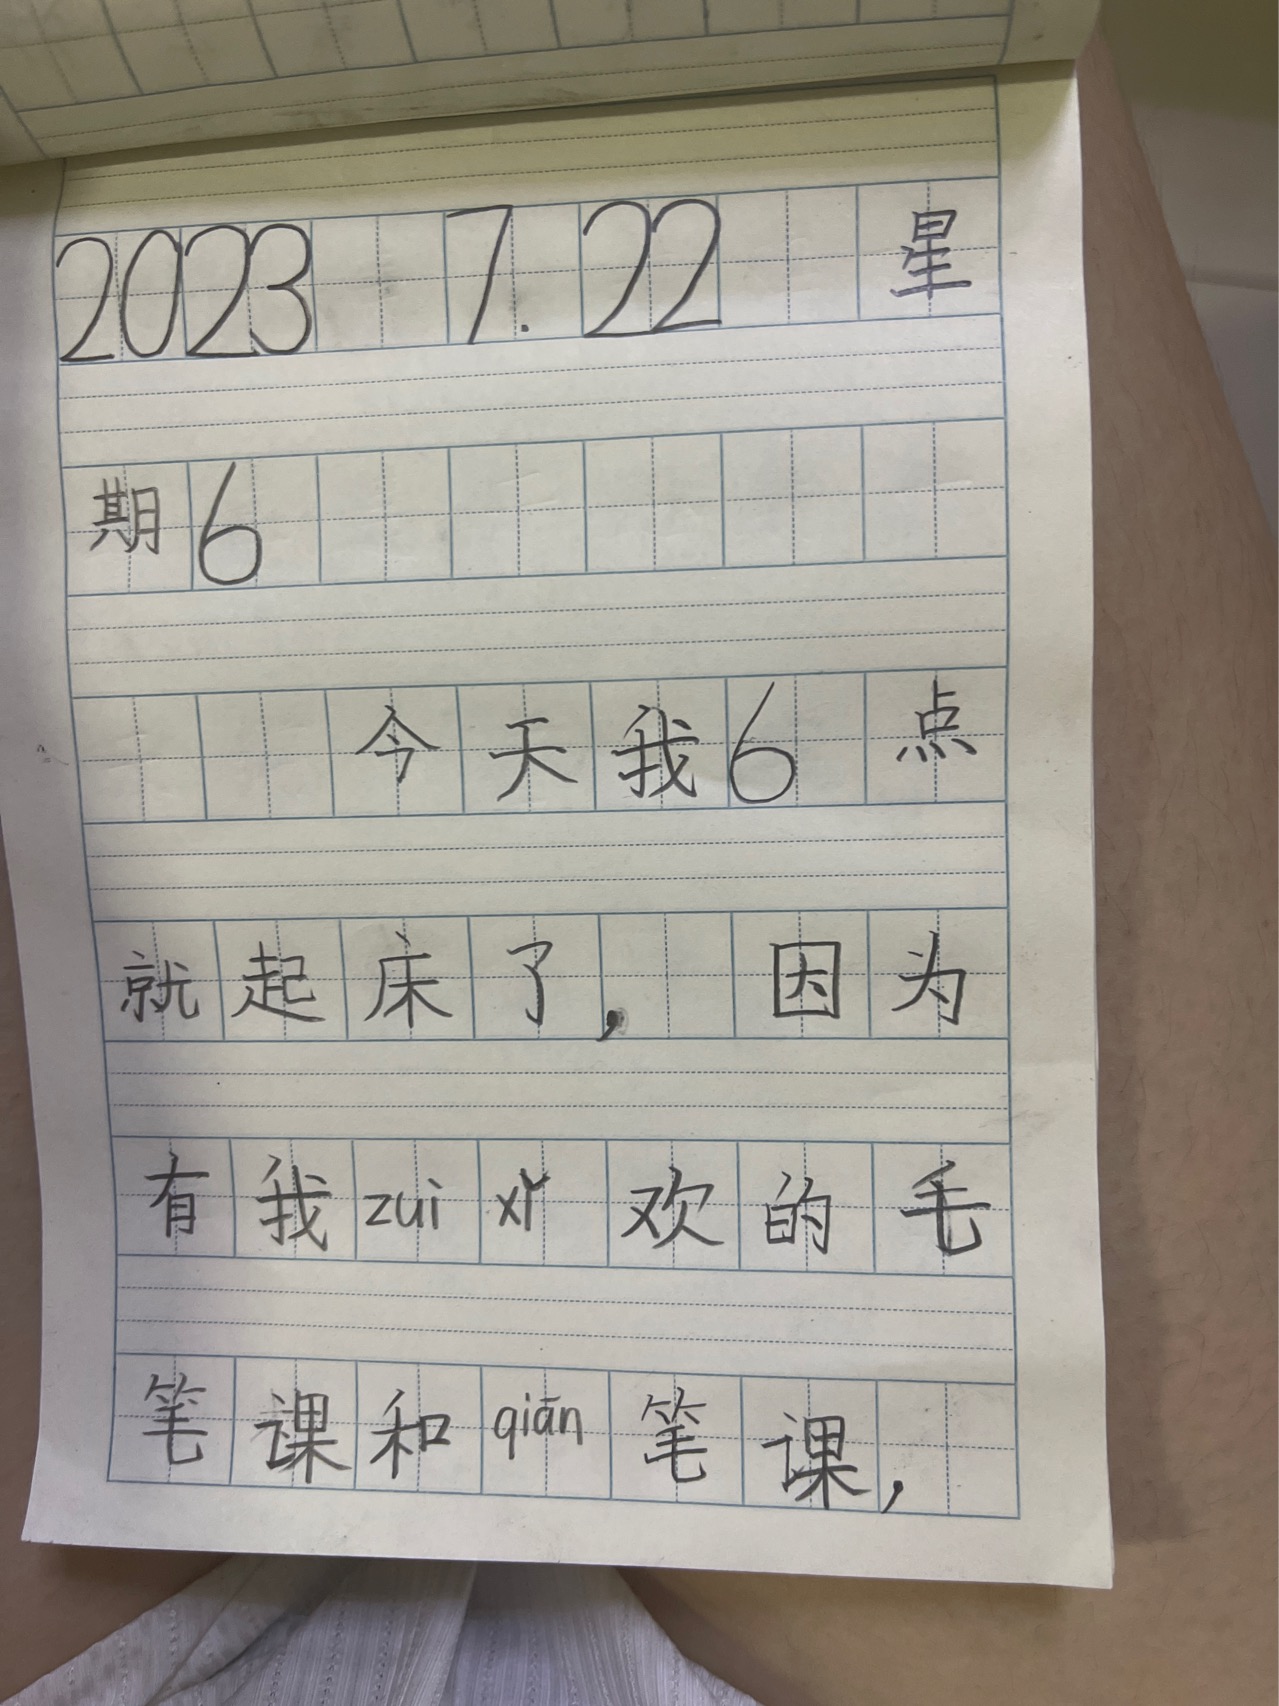 2023 7.22 星
期6
今天我6点
就起床了，因为
有我zui xǐ欢的毛
笔课和qiān笔课，